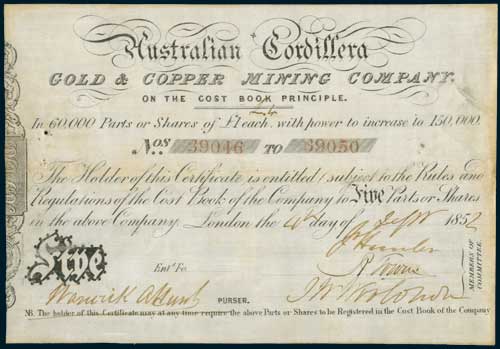 Australian Cordillera
GOLD & COPPER MINING COMPANY.
ON THE COST BOOK PRINCIPLE.
In 60,000 Parts or Shares of £1 each, with power to increase to 150,000.
Nos 39046 TO 39050
The Holder of this Certificate is entitled, subject to the Rules and
Regulations of the Cost Book of the Company to Five Parts or Shares
in the above Company. London the day of Sept 1852
Five
Entd. Fo.
R Towns
MEMBERS OF COMMITTEE.
Warwick
PURSER.
NB. The holder of this Certificate may at any time require the above Parts or Shares to be Registered in the Cost Book of the Company